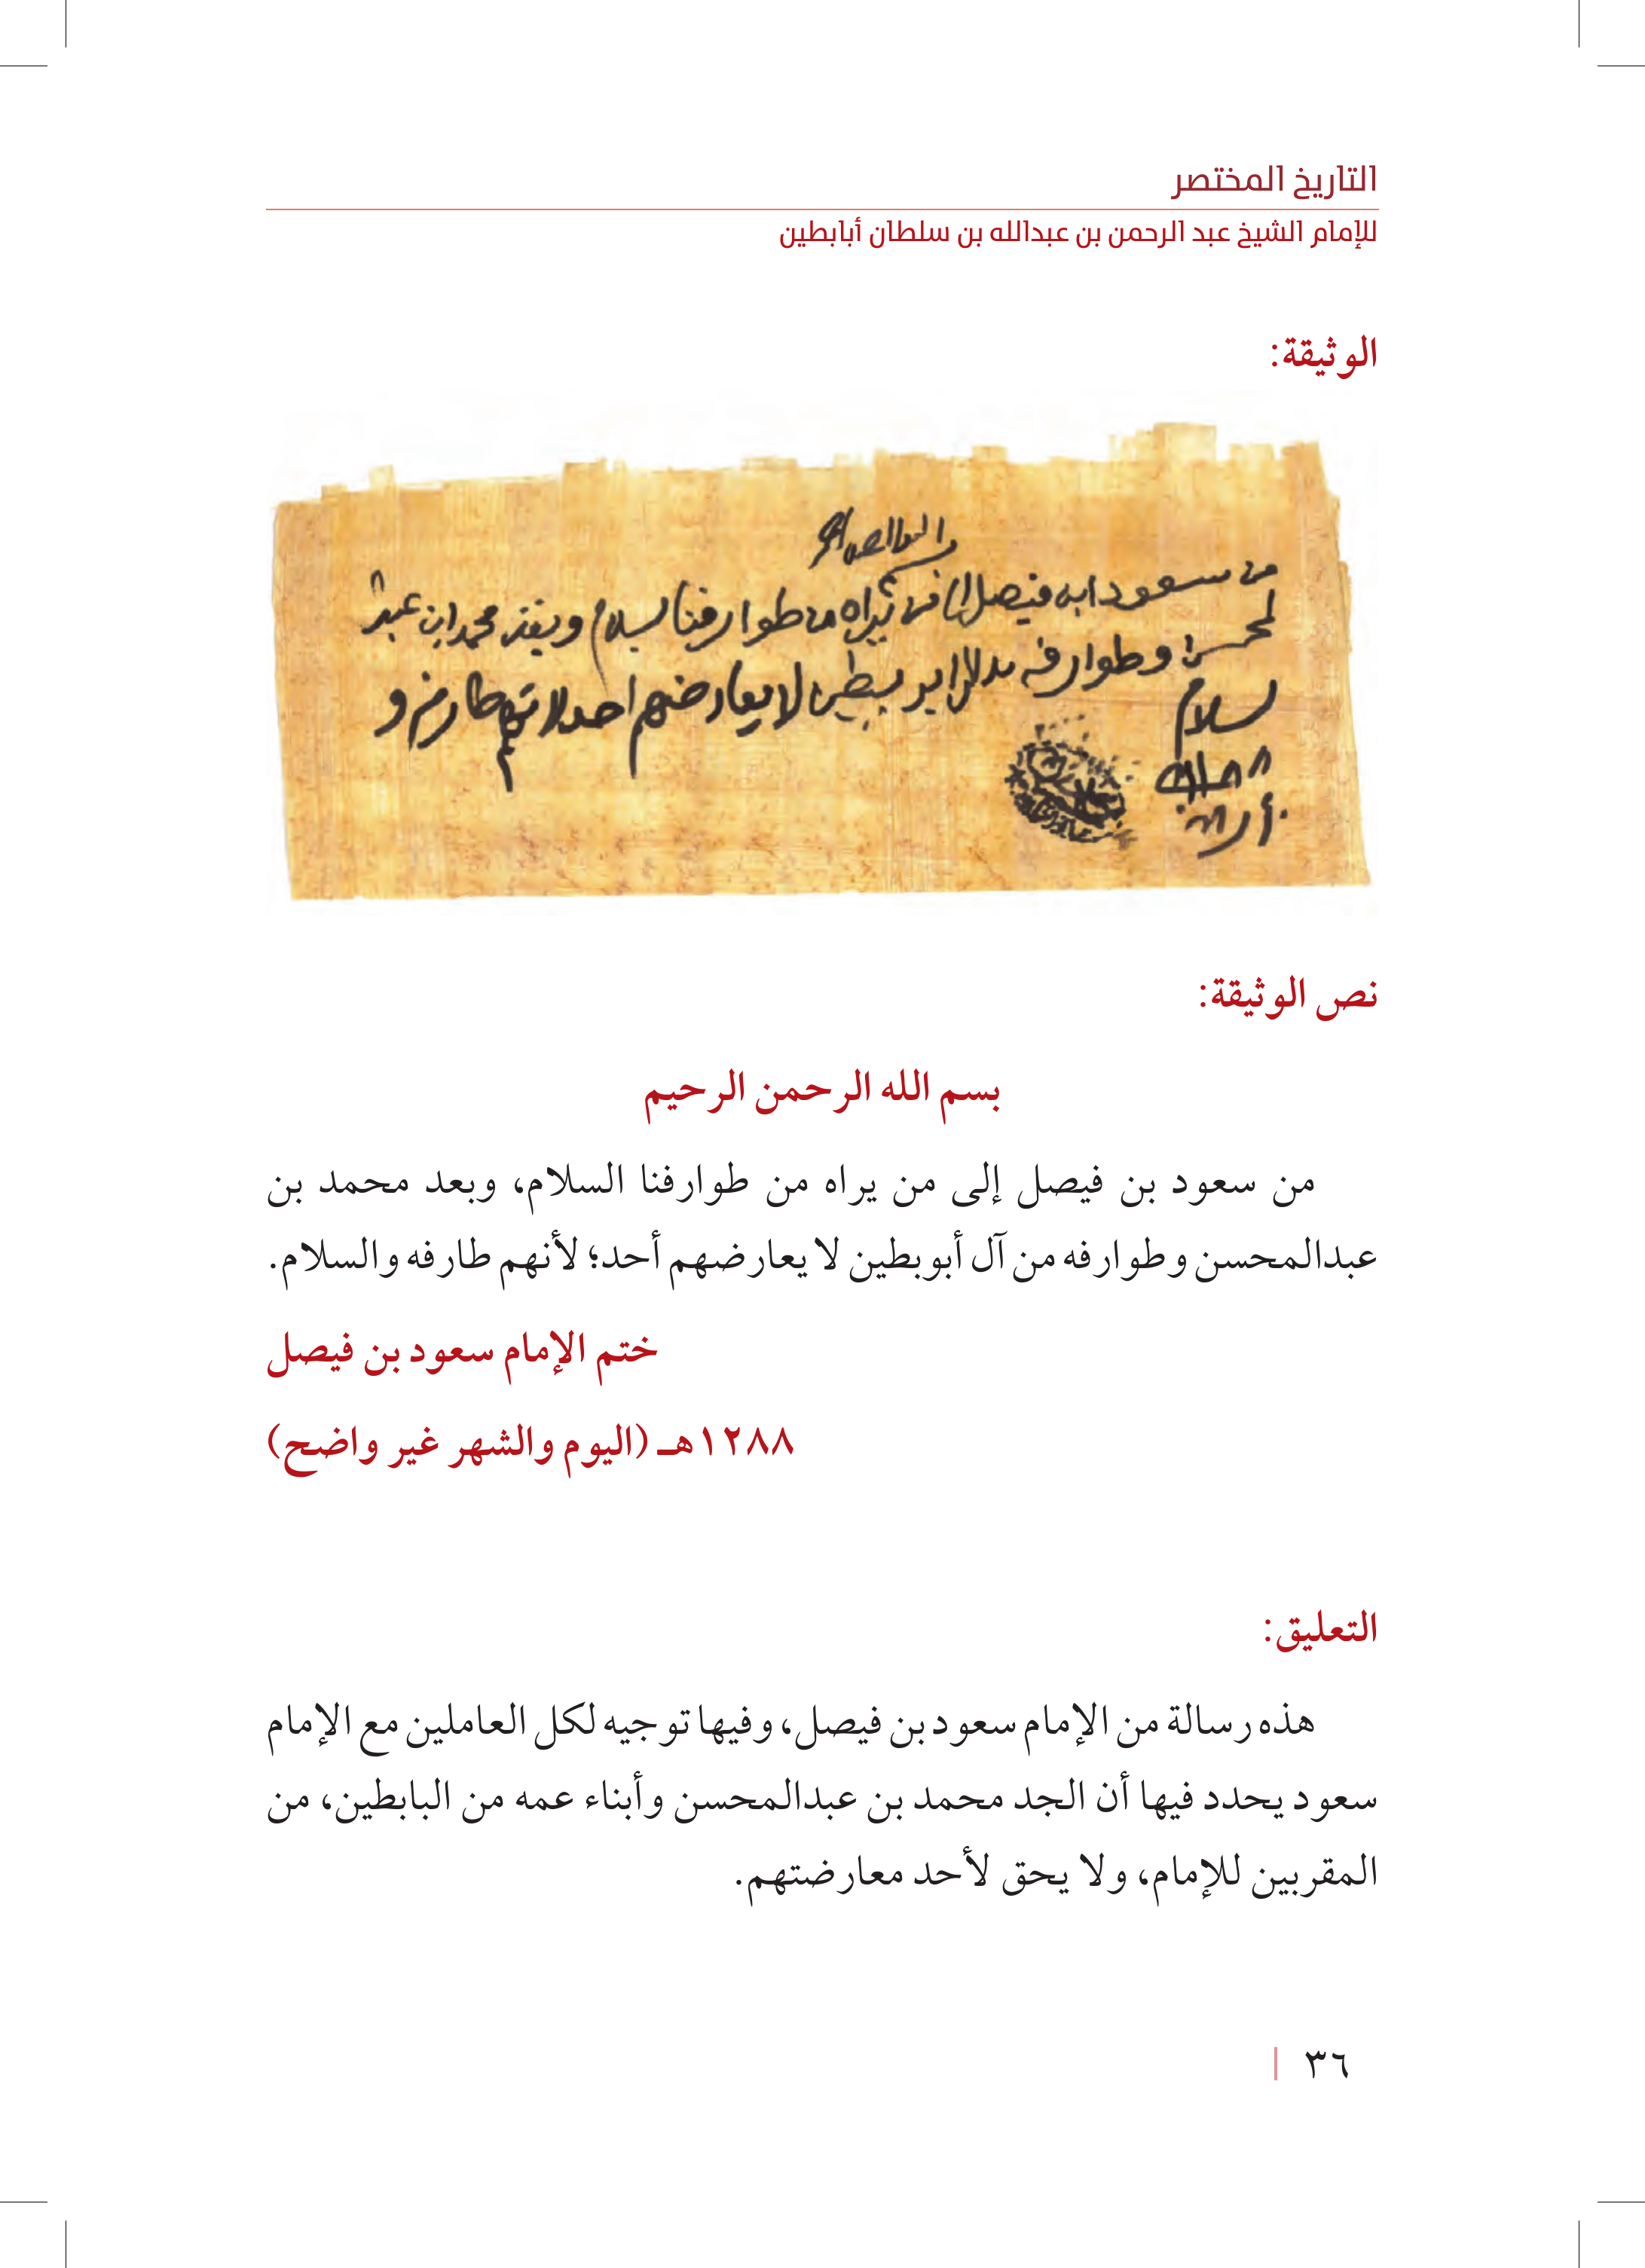 التاريخ المختصر
للإمام الشيخ عبد الرحمن بن عبدالله بن سلطان أبابطين
الوثيقة:
من سعود ابن فيصل من يراه من طوارفنا سلام محمد ابن عبد
لمحسن وطوارفه لا يعارضهم احد و
سلام
نص الوثيقة:
بسم الله الرحمن الرحيم
من سعود بن فيصل إلى من يراه من طوارفنا السلام، وبعد محمد بن
عبدالمحسن وطوارفه من آل أبوبطين لا يعارضهم أحد؛ لأنهم طارفه والسلام.
ختم الإمام سعود بن فيصل
١٢٨٨هـ (اليوم والشهر غير واضح)
التعليق:
هذه رسالة من الإمام سعود بن فيصل، وفيها توجيه لكل العاملين مع الإمام
سعود يحدد فيها أن الجد محمد بن عبدالمحسن وأبناء عمه من البابطين، من
المقربين للإمام، ولا يحق لأحد معارضتهم.
٣٦